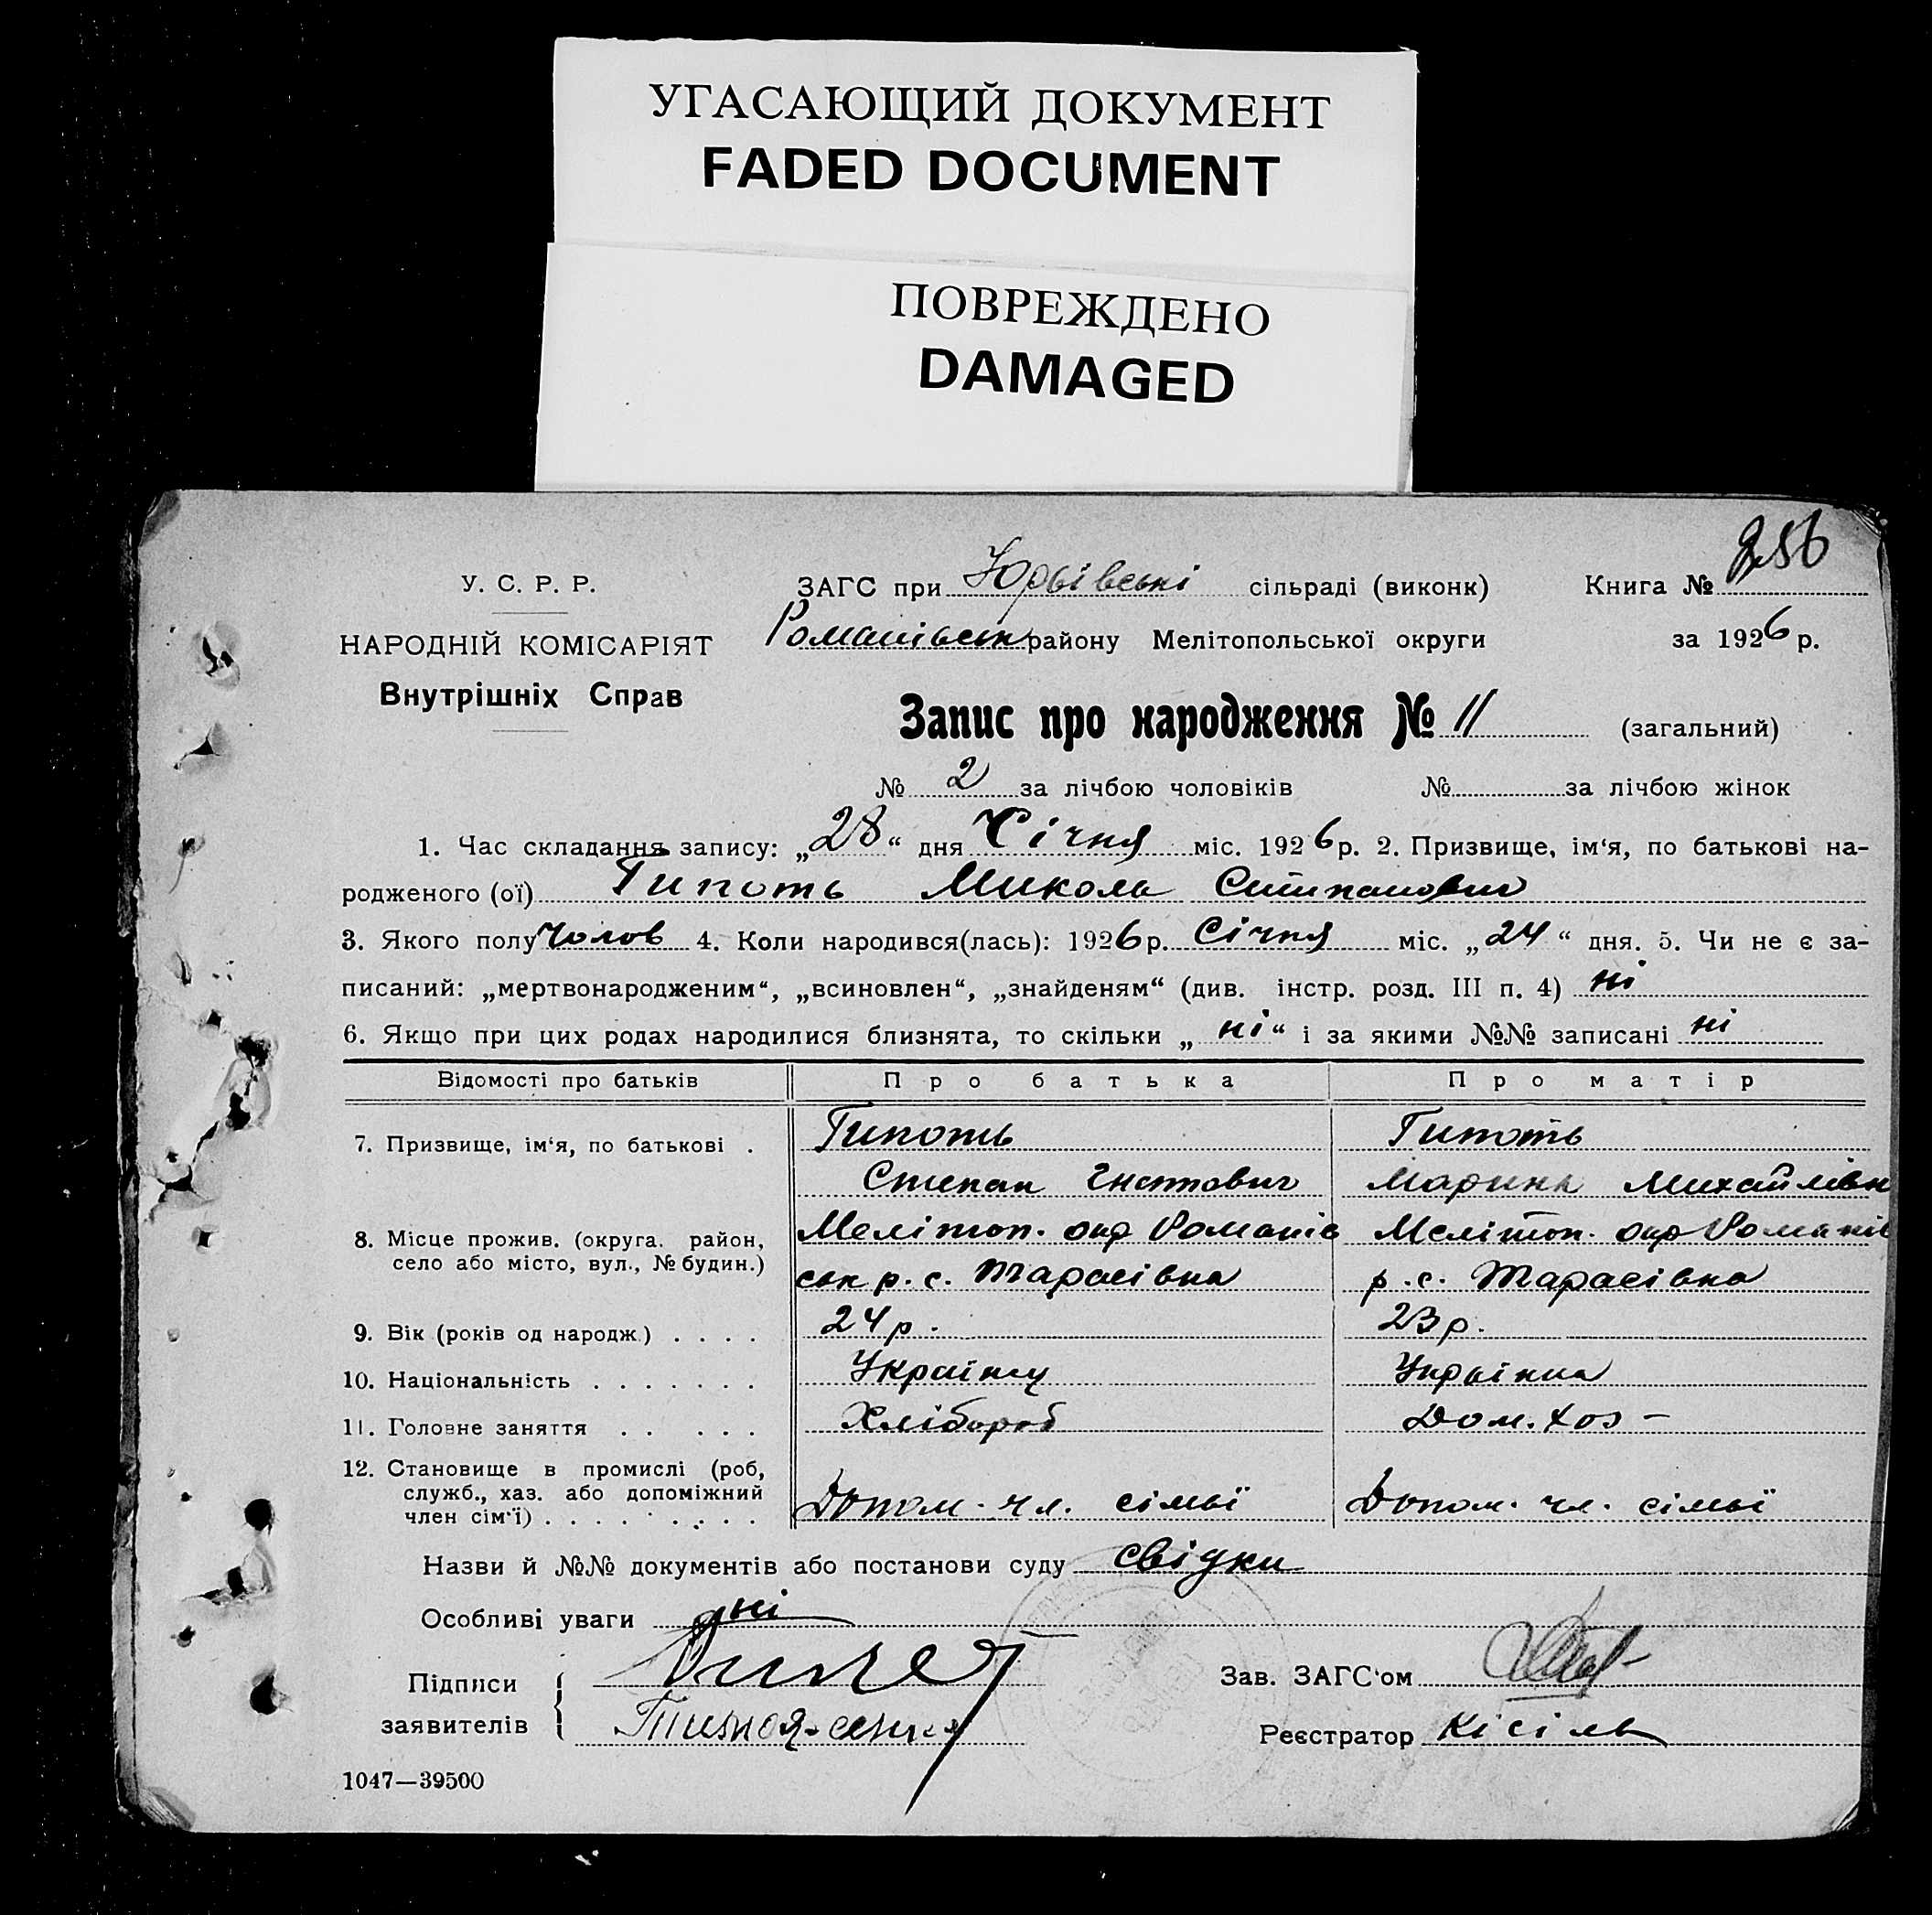 УГАСАЮЩИЙ ДОКУМЕНТ
FADED DOCUMENT
ПОВРЕЖДЕНО
DAMAGED
256
У. С. Р. Р. ЗАГС при Юрьівські сільраді (виконк) Книга №
НАРОДНІЙ КОМІСАРІЯТ Романівськ району Мелітопольської округи за 1926 р.
Внутрішніх Справ
Запис про народження № 11 (загальний)
№ 2 за лічбою чоловіків № за лічбою жінок
1. Час складання запису: „28“ дня Січня міс. 1926 р. 2. Призвище, ім‘я, по батькові на-
родженого (ої) Гипоть Микола Степанович
3. Якого полу Чолов 4. Коли народився(лась): 1926 р. Січня міс. „24“ дня. 5. Чи не є за-
писаний: „мертвонародженим“, „всиновлен“, „знайденям“ (див. інстр. розд. III п. 4) ні
6. Якщо при цих родах народилися близнята, то скільки „ні“ і за якими №№ записані ні
Відомості про батьків Про батька Про матір
7. Призвище, ім‘я, по батькові . Гипоть Гипоть
Степан Гнатович Марина Михайлівн
8. Місце прожив. (округа. район, Мелітоп. окр Романів Мелітоп. окр Романів
село або місто, вул., № будин.) ськ р. с. Тарасівка р. с. Тарасівка
9. Вік (років од народж.) . . . . 24 р. 23 р.
10. Національність . . . . . . . Українец Українка
11. Головне заняття . . . . . Хлібороб Дом. хоз –
12. Становище в промислі (роб,
служб., хаз. або допоміжний Допом. чл. сімьї Допом. чл. сімьї
член сім‘ї) . . . . . . . . .
Назви й №№ документів або постанови суду свідки
Особливі уваги ні
Підписи Зав. ЗАГС‘ом
заявителів Реєстратор Кісіль
1047—39500